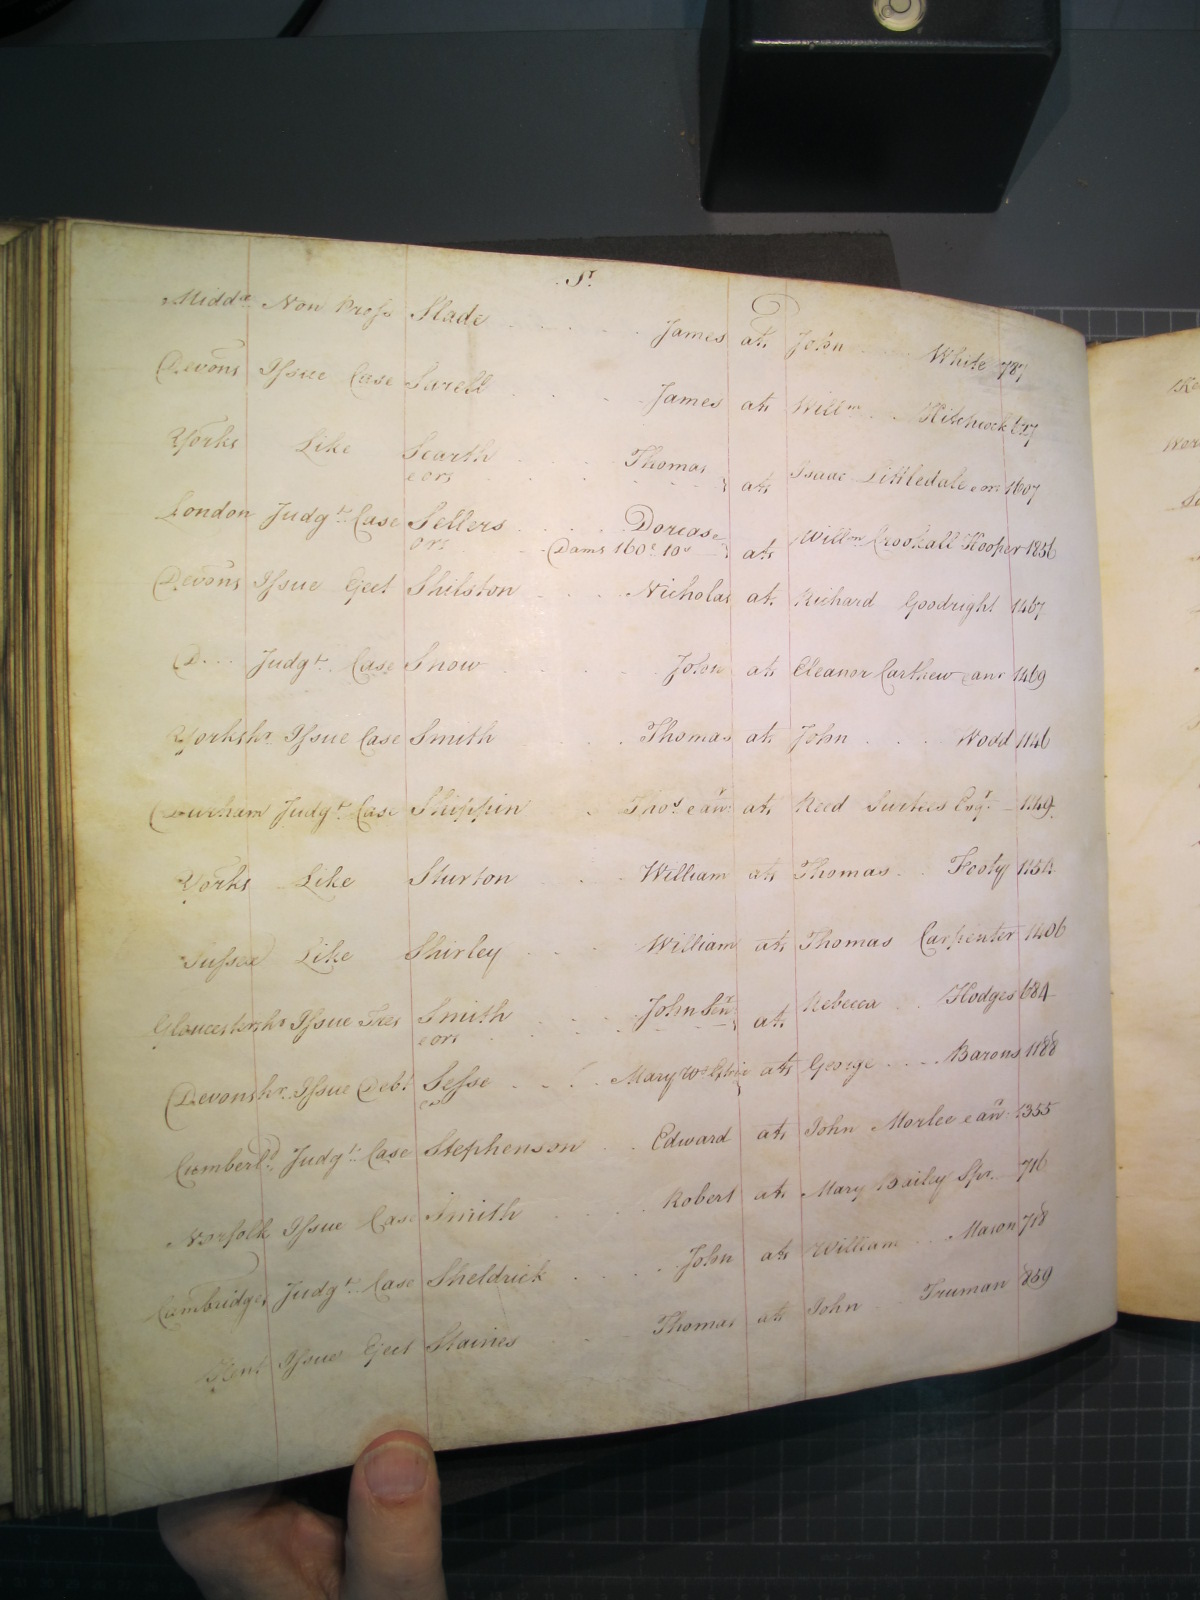 S.
Midd.x Non Pross Slade James at. John White 787
Devons Issue Case Sarell James at. Will.m Hitchcock 627
Yorks Like Scarth Thomas at. Isaac Littledale e ors 1607
e ors
London Judg.t Case Sellers Dorcas at. Will.m Crookall Hooper 1256
ors Dams 160£ 10s
Devons Issue Eject Shilston Nicholas at. Richard Goodright 1467
D.... Judg.t Case Snow John at. Eleanor Carthew an.r 1469
Yorkshr Issue Case Smith Thomas at. John Wood 1146
Durham Judg.t Case Shippin Tho.s e an.r at. Reed Surtees Esq.r 1149
Yorks Like Sturton William at. Thomas Footy 1154
Sussex Like Shirley William at. Thomas Carpenter 1406
Gloucestershr Issue Tres Smith John Sen.r at. Rebecca Hodges 684
e ors
Devonshr. Issue Debt Sesse Mary at. George Barons 1188
Cumberl.d Judg.t Case Stephenson Edward at. John Morlee e an.r 1355
Norfolk Issue Case Smith Robert at. Mary Bailey Spr. 716
Cambridges Judg.t Case Sheldrick John at. William Mason 718
Kent Issue Eject Staines Thomas at. John Truman 859